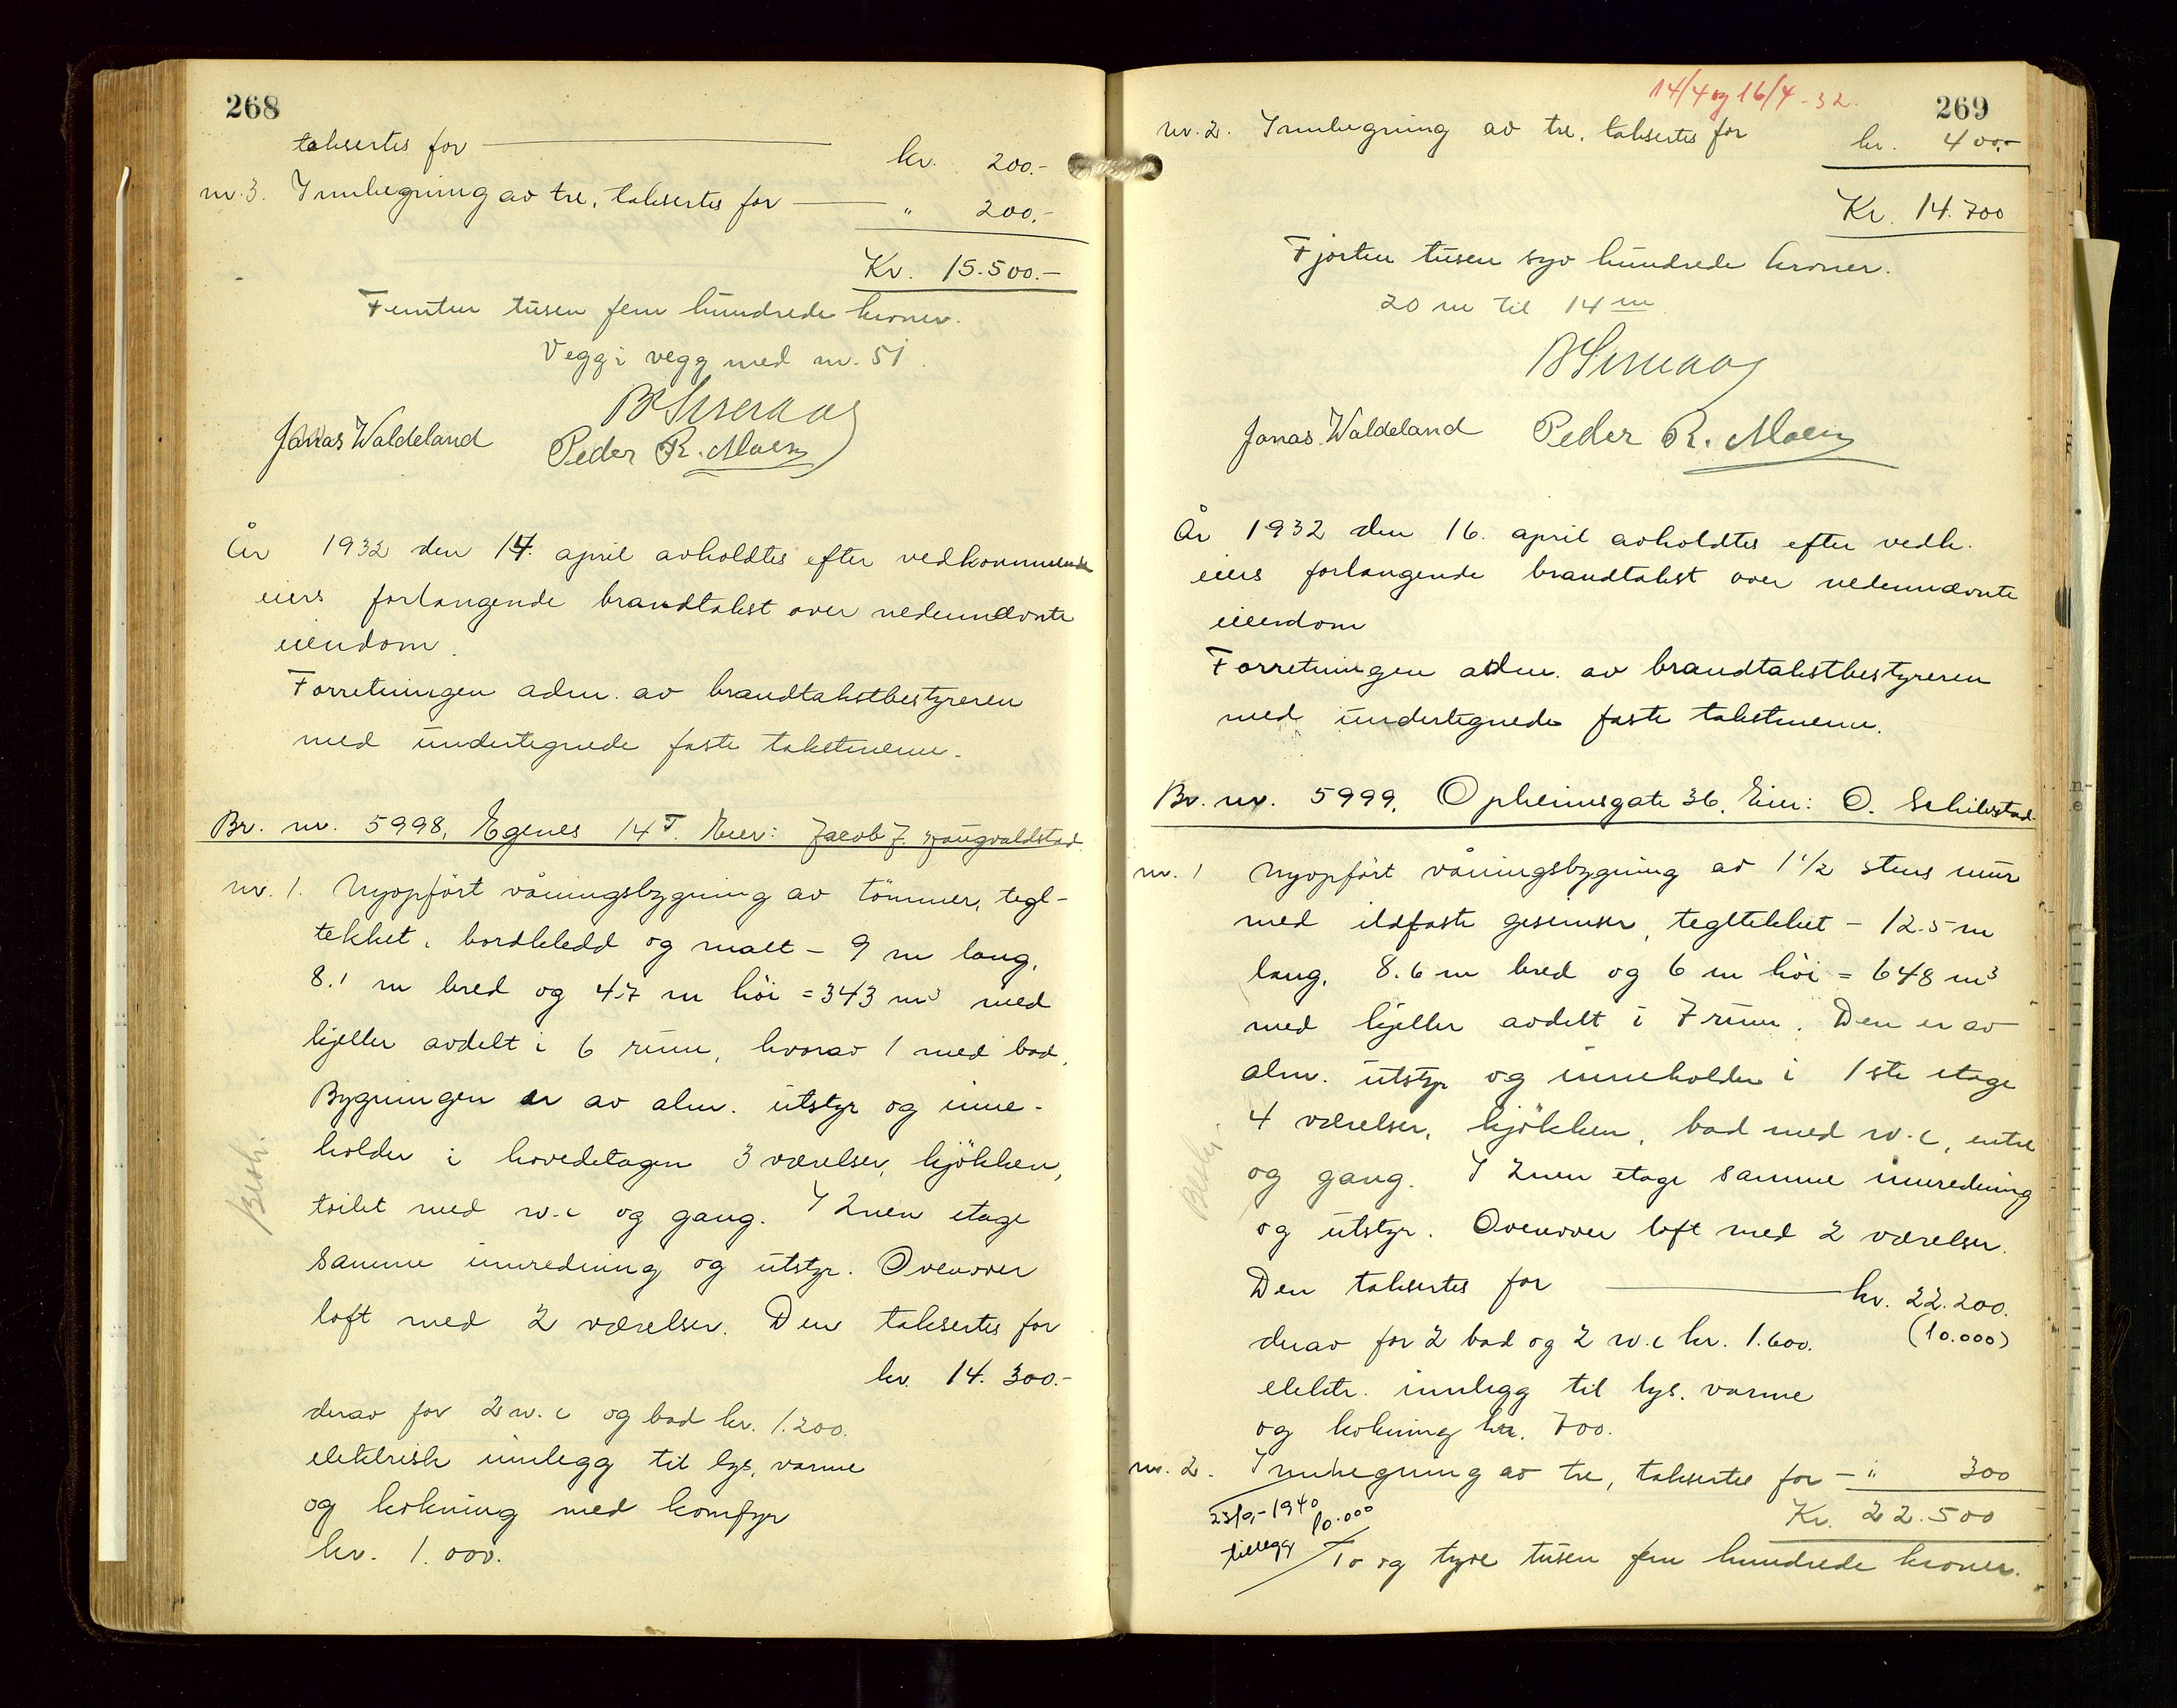 268
taksertes for kr. 200.-
nr. 3. Innhegning av tre, taksertes for " 200.-
Kr. 15.500.-
Femten tusen fem hundrede kroner.
Vegg i vegg med nr. 51.
Jonas Waldeland Peder R. Moen
År 1932 den 14. april avholdtes efter vedkommende
eiers forlangende brandtakst over nedennævnte
eiendom.
Forretningen adm. av brandtakstbestyreren
med undertegnede faste takstmenn.
Br. nr. 5998, Egenes 14 T. Eier: Jacob J.
nr. 1. Nyopført våningsbygning av tømmer, tegl-
tekket, bordkledd og malt - 9 m lang,
8.1 m bred og 4.7 m höi = 343 m3 med
kjeller avdelt i 6 rum, hvorav 1 med bad.
Bygningen er av alm. utstyr og inne-
holder i hovedetagen 3 værelser, kjökken,
toilet med w.c og gang. I 2nen etage
samme innredning og utstyr. Ovenover
loft med 2 værelser. Den taksertes for
kr. 14.300.-
derav for 2 w.c og bad kr. 1.200.
elektrisk innlegg til lys, varme
og kokning med komfyr
kr. 1.000.
Besk.
14/4 og 16/4-32.
269
nr. 2. Innhegning av tre, taksertes for kr. 400.-
Kr. 14.700
Fjorten tusen syv hundrede kroner.
20 m til 14 m
Jonas Waldeland Peder R. Moen
År 1932 den 16. april avholdtes efter vedk.
eiers forlangende brandtakst over nedennævnte
eiendom
Forretningen adm. av brandtakstbestyreren
med undertegnede faste takstmenn.
Br. nr. 5999. Opheimsgate 36. Eier: O. Schibstad
nr. 1 Nyopført våningsbygning av 1 1/2 stens mur
med ildfaste gesimser, tegltekket - 12.5 m
lang, 8.6 m bred og 6 m höi = 648 m3
med kjeller avdelt i 7 rum. Den er av
alm. utstyr og inneholder i 1ste etage
4 værelser, kjökken, bad med w.c, entre
og gang. I 2nen etage samme innredning
og utstyr. Ovenover loft med 2 værelser.
Den taksertes for kr. 22.200.
derav for 2 bad og 2 w.c kr. 1.600. (10.000)
elektr. innlegg til lys, varme
og kokning kr. 700.
nr. 2. Innhegning av tre, taksertes for - " 300
Kr. 22.500
23/9-1940 10.000
tillegg
To og tyve tusen fem hundrede kroner.
Besk.